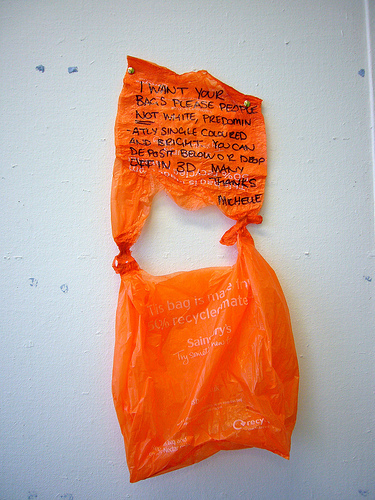 I WANT YOUR
BAGS PLEASE PEOPLE
NOT WHITE, PREDOMIN
-ATLY SINGLE COLOURED
AND BRIGHT. YOU CAN
DEPOSIT BELOW OR DROP
EM IN 3D MANY
THANKS
MICHELLE
This bag is made
recycled mate
Sainsbury's
Try something new
recy